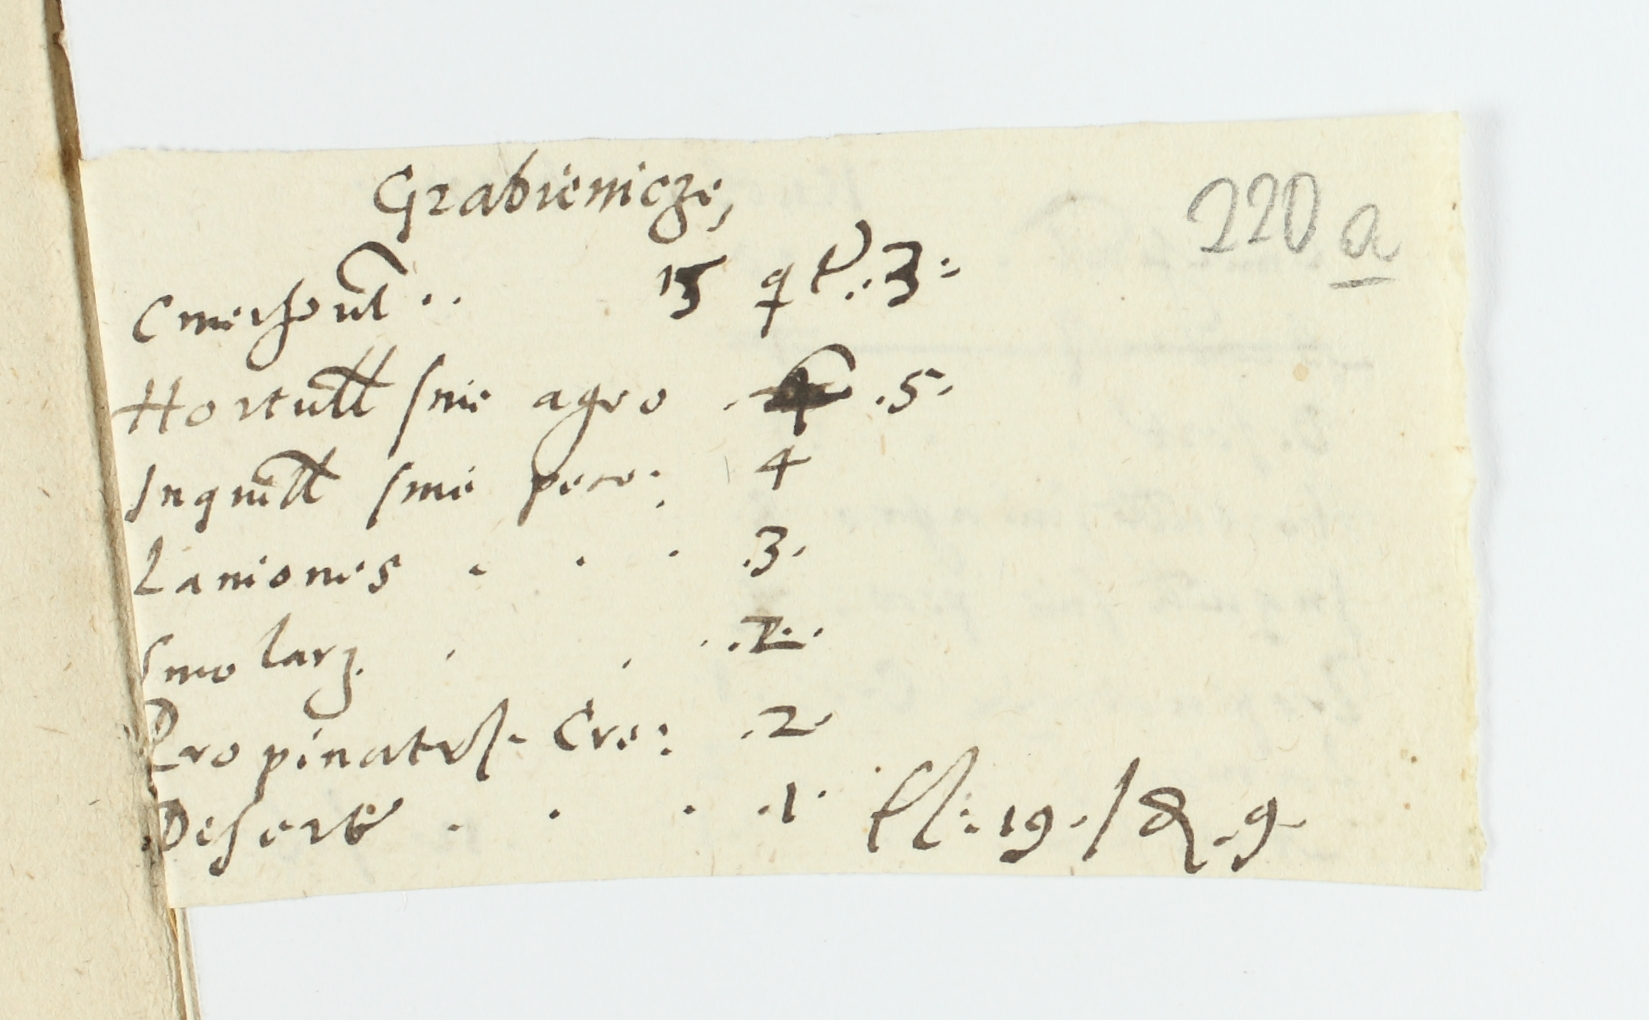 Grabienicze,
220 a
Cmethon̄ .. 15 q̄r .. 3 :
Hortull sine agro . .5.
Inquill sine peco: 4
Laniones . . . .3.
Smolarz . . . .2.
Propinatrs. Cre: .2
Deserte . . . .1. fl: 19. / gr. 9.